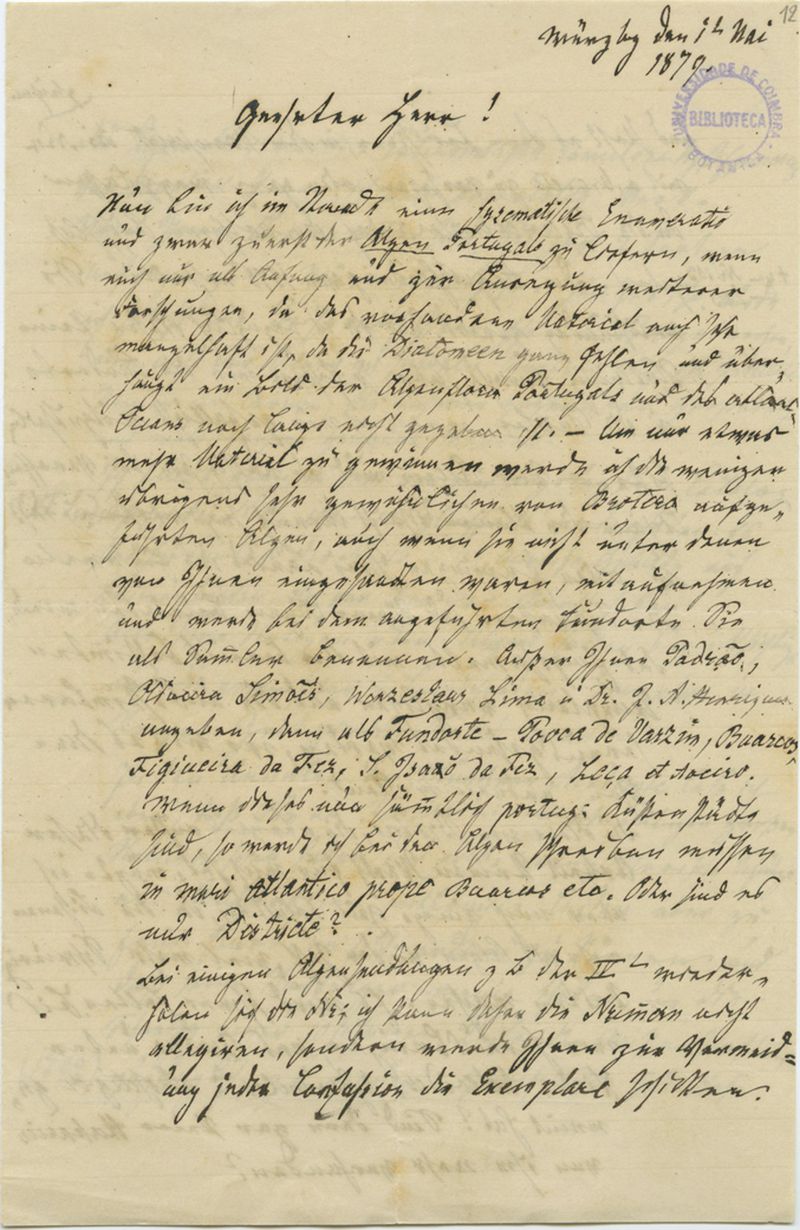 12
Würzbg den 1t Mai
1879.
UNIVERSIDADE DE COIMBRA
BIBLIOTECA
BOTANICA
Geehrter Herr!
Nun bin ich im Stande eine systematische Enumeratio
und zwar zuerst der Algen Portugals zu liefern, wenn
auch nur als Anfang und zur Anregung weiterer
Forschungen, da das vorhandene Material noch sehr
mangelhaft ist, da die Diatomeen ganz fehlen und über-
haupt ein Bild der Algenflora Portugals und des atlant.
Oceans noch lange nicht gegeben ist. – Um nur etwas
mehr Material zu gewinnen werde ich die wenigen
übrigens sehr gewöhnlichen von Brotero aufge-
führten Algen, auch wenn sie nicht unter denen
von Ihnen eingesandten waren, mit aufnehmen
und werde bei dem angeführten Fundorte Sie
als Sammler benennen. Außer Ihnen Padrão,
Simões, Lima u Dr. J. A. Henriques
angeben, dann als Fundorte – Povca de Varzim, Buarcos,
Figiueira da Fez, S. da Fez, Leça et Aveiro.
Wenn dieses nun sämtlich portug: Küstenstädte
sind, so werde ich bei den Algen schreiben müssen
in mari atlantico prope Buarcos etc. Oder sind es
nur Districte?
Bei einigen Algensendungen z B der IIt wieder-
holen sich die Nr; ich kann daher die Numern nicht
allegiren, sondern werde Ihnen zur Vermeid=
ung jeder Confusion die Exemplare schicken.